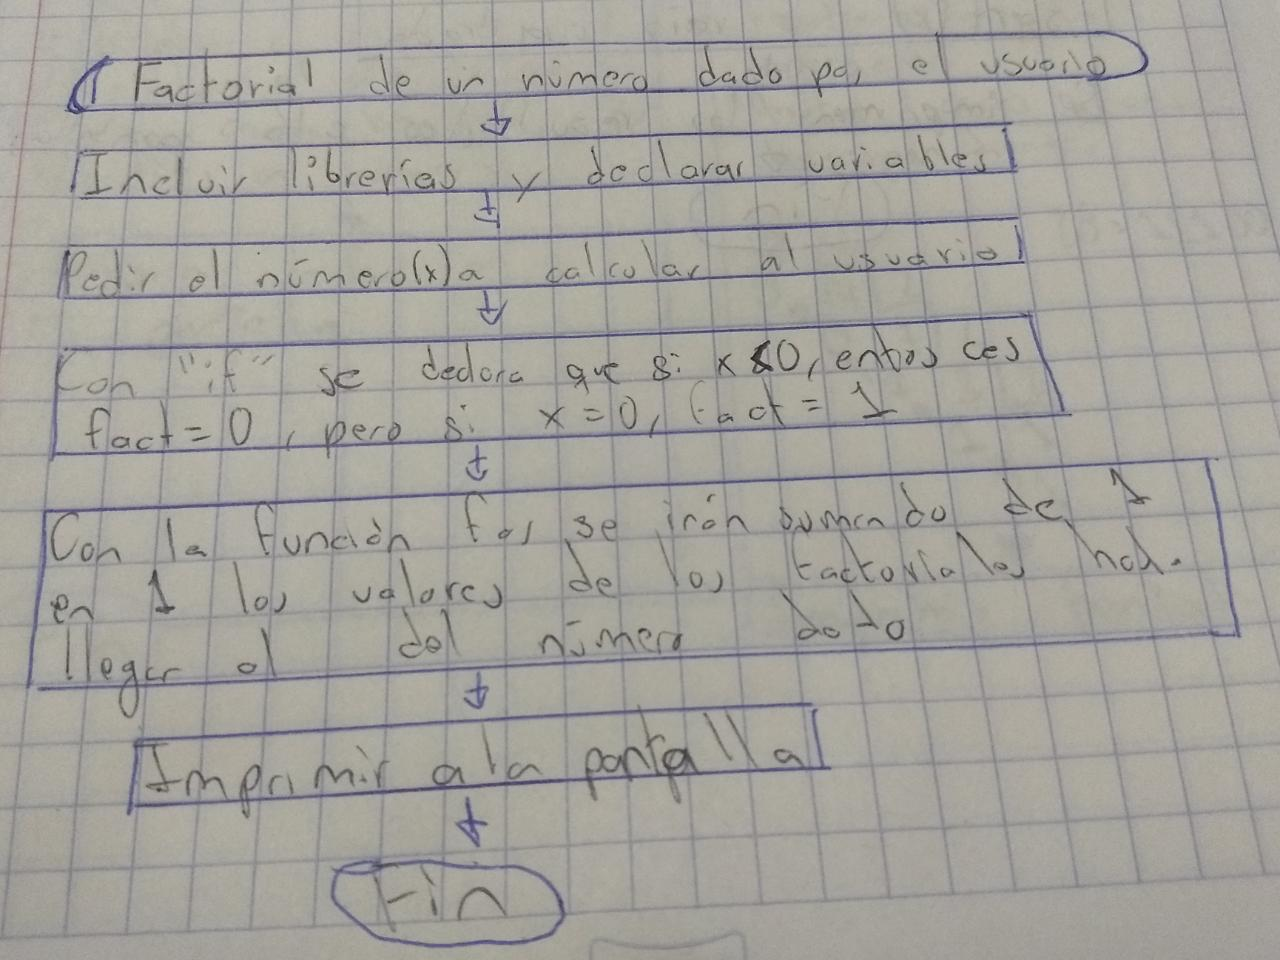 Factorial de un número dado por el usuario
Incluir librerías y declarar variables
Pedir el número(x) a calcular al usuario
Con "if" se declara que si x<0, entonces
fact=0, pero si x=0, fact=1
Con la función for se irán sumando de 1
en 1 los valores de los factoriales
llegar al del número dado
Imprimir a la pantalla
Fin